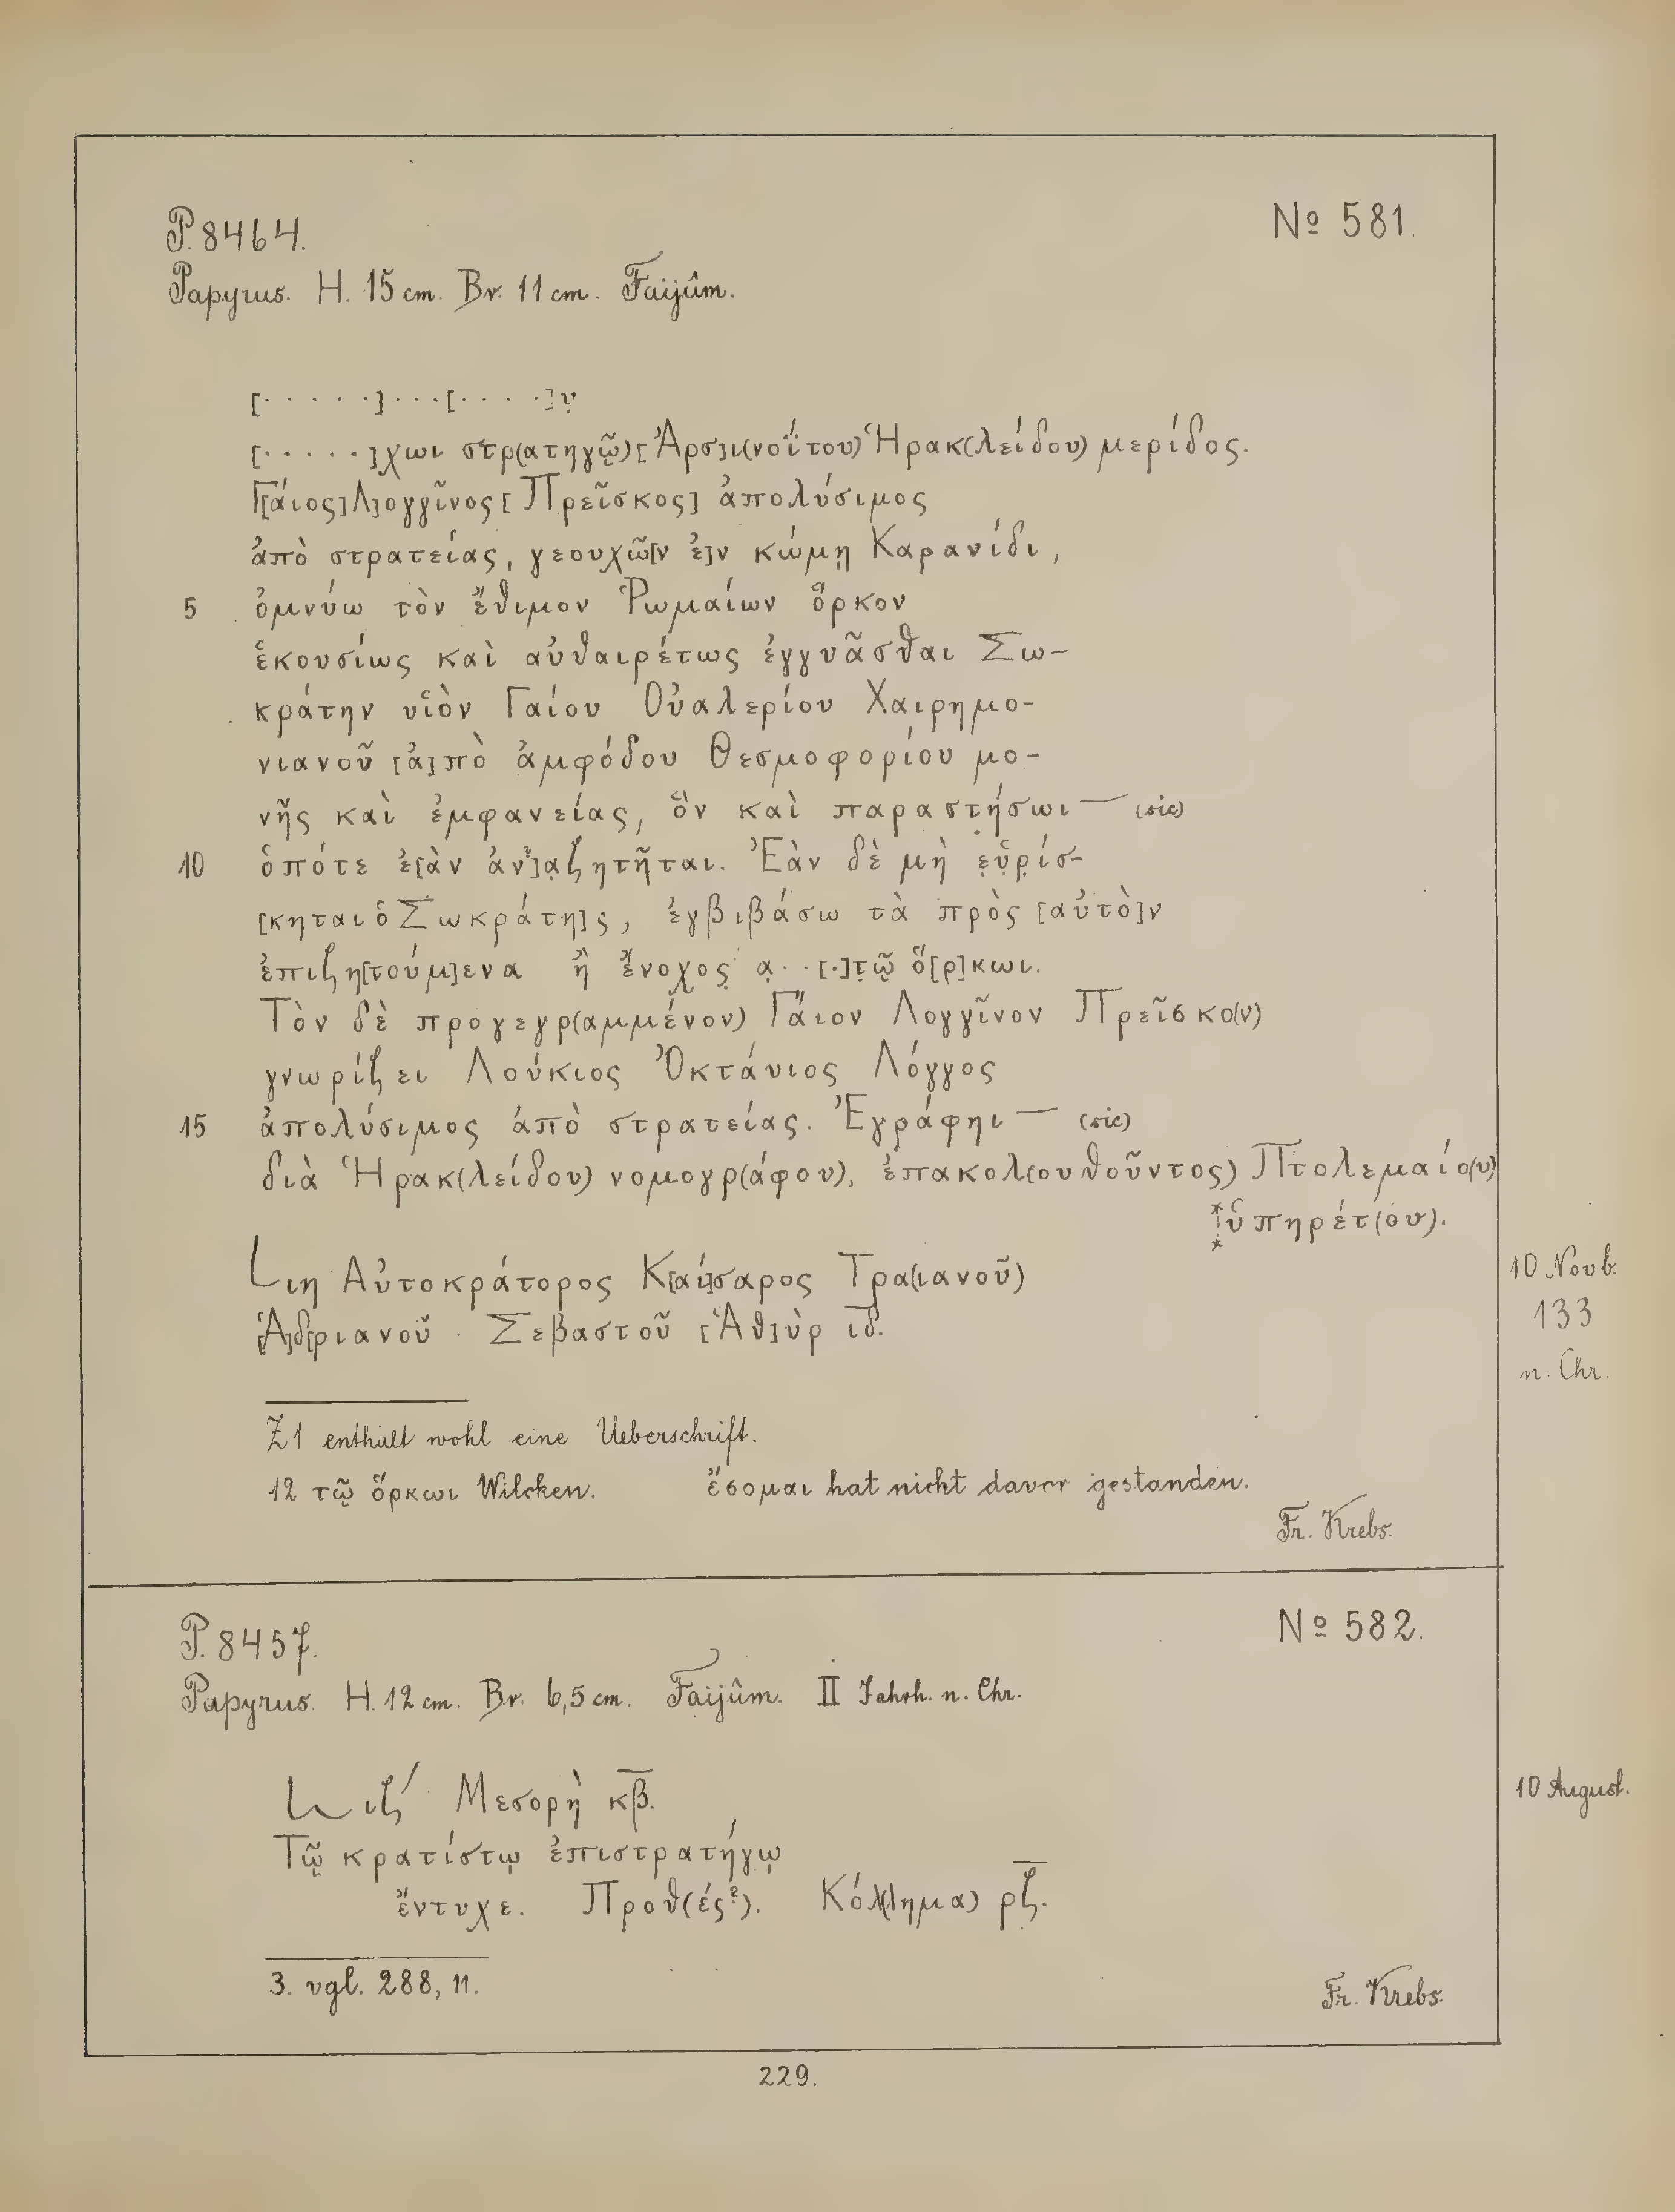 P. 8464.
№ 581.
Papyrus. H. 15 cm. Br. 11 cm. Faijûm.
[· · · · · ·] · · · [· · · · ·]ν̣
[· · · · ·]χωι στρ(ατηγῷ) [Ἀρσ]ι(νοΐτου) Ἡρακ(λείδου) μερίδος.
Γ[άιος] Λ]ογγῖνος [Πρεῖσκος] ἀπολύσιμος
ἀπὸ στρατείας, γεουχῶ[ν ἐ]ν κώμῃ Καρανίδι,
5 ὀμνύω τὸν ἔθιμον Ῥωμαίων ὅρκον
ἑκουσίως καὶ αὐθαιρέτως ἐγγυᾶσθαι Σω-
κράτην υἱὸν Γαίου Οὐαλερίου Χαιρημο-
νιανοῦ [ἀ]πὸ ἀμφόδου Θεσμοφορίου μο-
νῆς καὶ ἐμφανείας, ὃν καὶ παραστήσωι — (sic)
10 ὁπότε ἐ[ὰν ἀν?]α̣ζητῆται. Ἐὰν δὲ μὴ ε̣ὑ̣ρ̣ίσ-
[κηται ὁ Σωκράτη]ς, ἐγβιβάσω τὰ πρὸς [αὐτὸ]ν
ἐπιζη[τούμ]ενα ἢ ἔνοχος̣ α̣ · · [·]τ̣ῷ ὅ[ρ]κωι.
Τὸν δὲ προγεγρ(αμμένον) Γάιον Λογγῖνον Πρεῖσκο(ν)
γνωρίζει Λούκιος Ὀκτάυιος Λόγγος
15 ἀπολύσιμος ἀπὸ στρατείας. Ἐγράφηι — (sic)
διὰ Ἡρακ(λείδου) νομογρ(άφου), ἐπακολ(ουθοῦντος) Πτολεμαίο(υ)
ὑπηρέτ(ου).
Lιη Αὐτοκράτορος Κ[αί]σαρος Τρα(ιανοῦ)
[Ἁ]δ[ριανοῦ Σεβαστοῦ [Ἁθ]ὺρ ι̅δ̅.
10 Novb.
133
n. Chr.
Z 1 enthält wohl eine Ueberschrift.
12 τῷ ὅρκωι Wilcken. ἔσομαι hat nicht davor gestanden.
Fr. Krebs.
P. 8457.
№ 582.
Papyrus. H. 12 cm. Br. 6,5 cm. Faijûm. II Jahrh. n. Chr.
L ιζ´ Μεσορὴ κ̅β̅.
10 August.
Τῷ κρατίστῳ ἐπιστρατήγῳ
ἔντυχε. Προθ(ές?). Κόλ(λημα) ρ̅ζ̅.
3. vgl. 288, 11.
Fr. Krebs.
229.